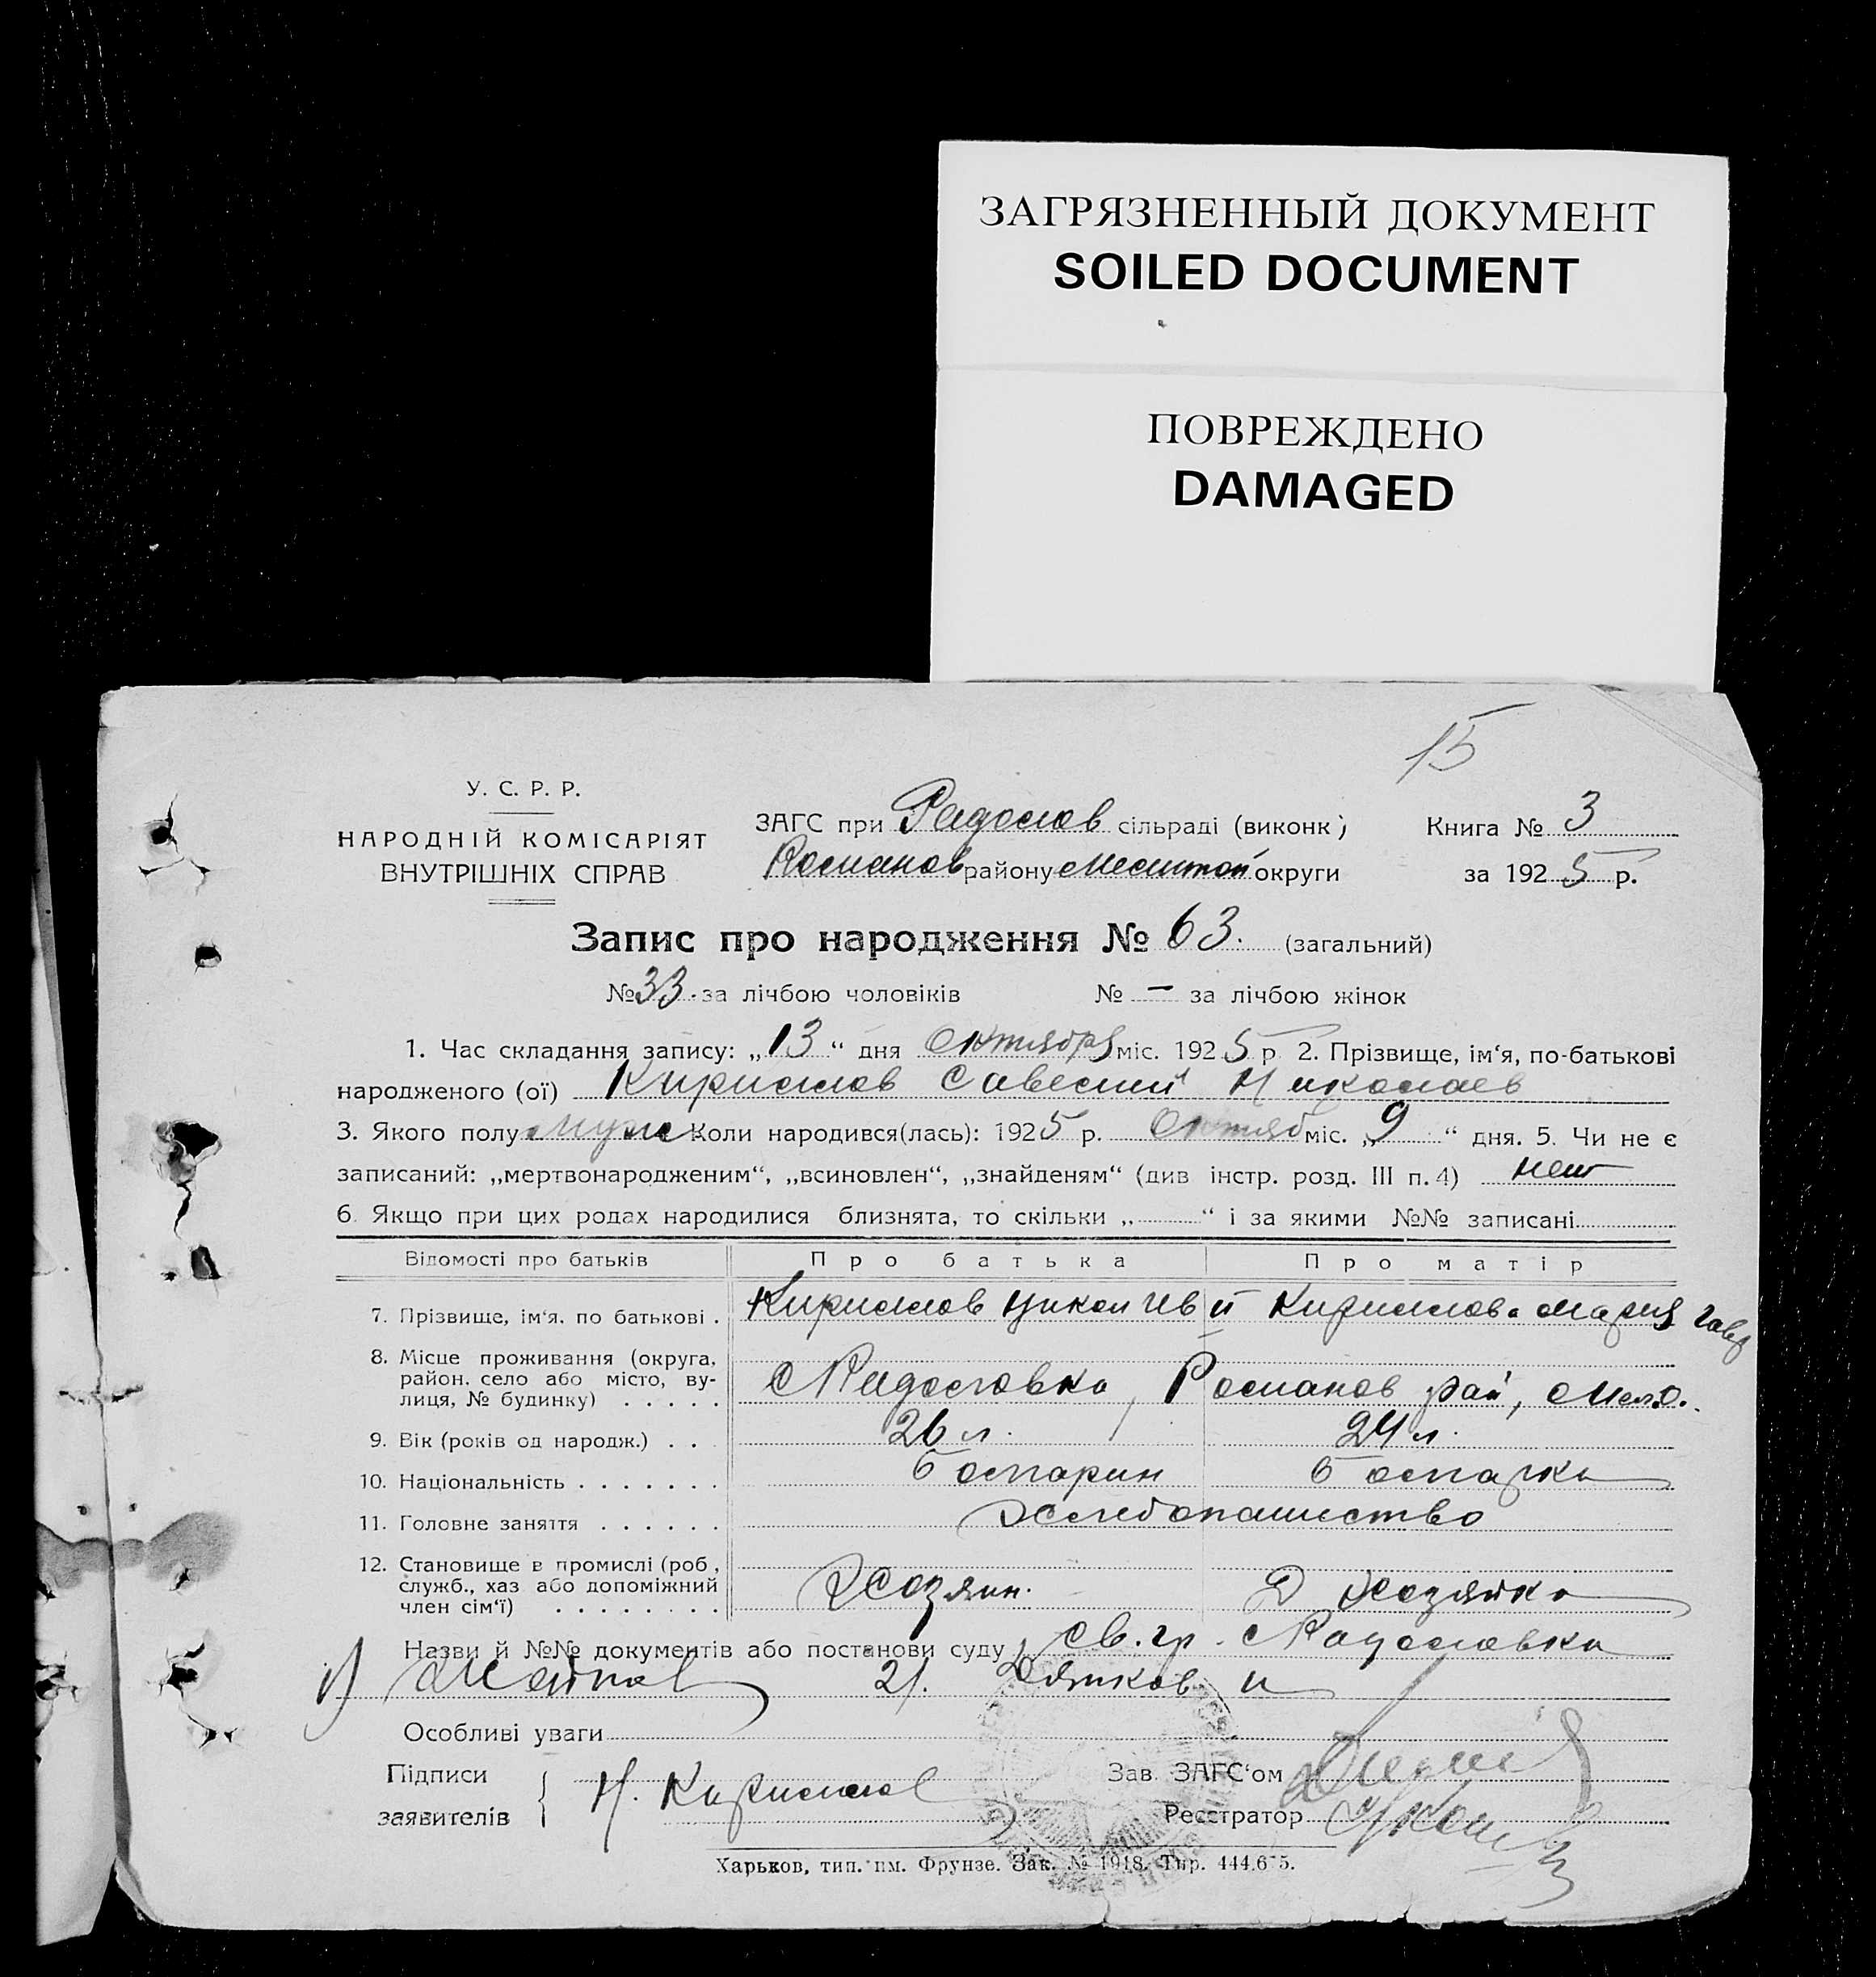 ЗАГРЯЗНЕННЫЙ ДОКУМЕНТ
SOILED DOCUMENT
ПОВРЕЖДЕНО
DAMAGED
15
У. С. Р. Р.
НАРОДНІЙ КОМІСАРІЯТ
ВНУТРІШНІХ СПРАВ
ЗАГС при Радолов сільраді (виконк)
Романов району Мелитоп округи
Книга № 3
за 1925 р.
Запис про народження № 63. (загальний)
№ 33. за лічбою чоловіків № — за лічбою жінок
1. Час складання запису: „13“ дня Октября міс. 1925 р 2. Прізвище, ім‘я, по-батькові
народженого (ої) Кириллов Савелий Николаев
3. Якого полу муж Коли народився(лась): 1925 р. Октяб міс. „9“ дня. 5. Чи не є
записаний: „мертвонародженим“, „всиновлен“, „знайденям“ (див інстр. розд. III п. 4) нет
6. Якщо при цих родах народилися близнята, то скільки „ “ і за якими №№ записані
Відомості про батьків Про батька Про матір
7. Прізвище, ім‘я. по батькові . Кириллов Никол Ив й Кириллова Мария Гавр
8. Місце проживання (округа,
район. село або місто, ву-
лиця, № будинку) . . . . . С Радоловка, Романов рай, Мел.О.
9. Вік (років од народж.) . . . 26 л. 24 л.
10. Національність . . . . . . . болгарин болгарка
11. Головне заняття . . . . . . хлебопашество
12. Становище в промислі (роб.,
служб., хаз або допоміжний
член сім‘ї) . . . . . . . . Хозяин. Д Хозяйка
Назви й №№ документів або постанови суду св. гр. с Радоловка
21. и
Особливі уваги
Підписи
заявителів Н. Кириллов
Зав. ЗАГС‘ом
Реєстратор
Харьков, тип. им. Фрунзе. Зак. № 1918. Тир. 444.675.